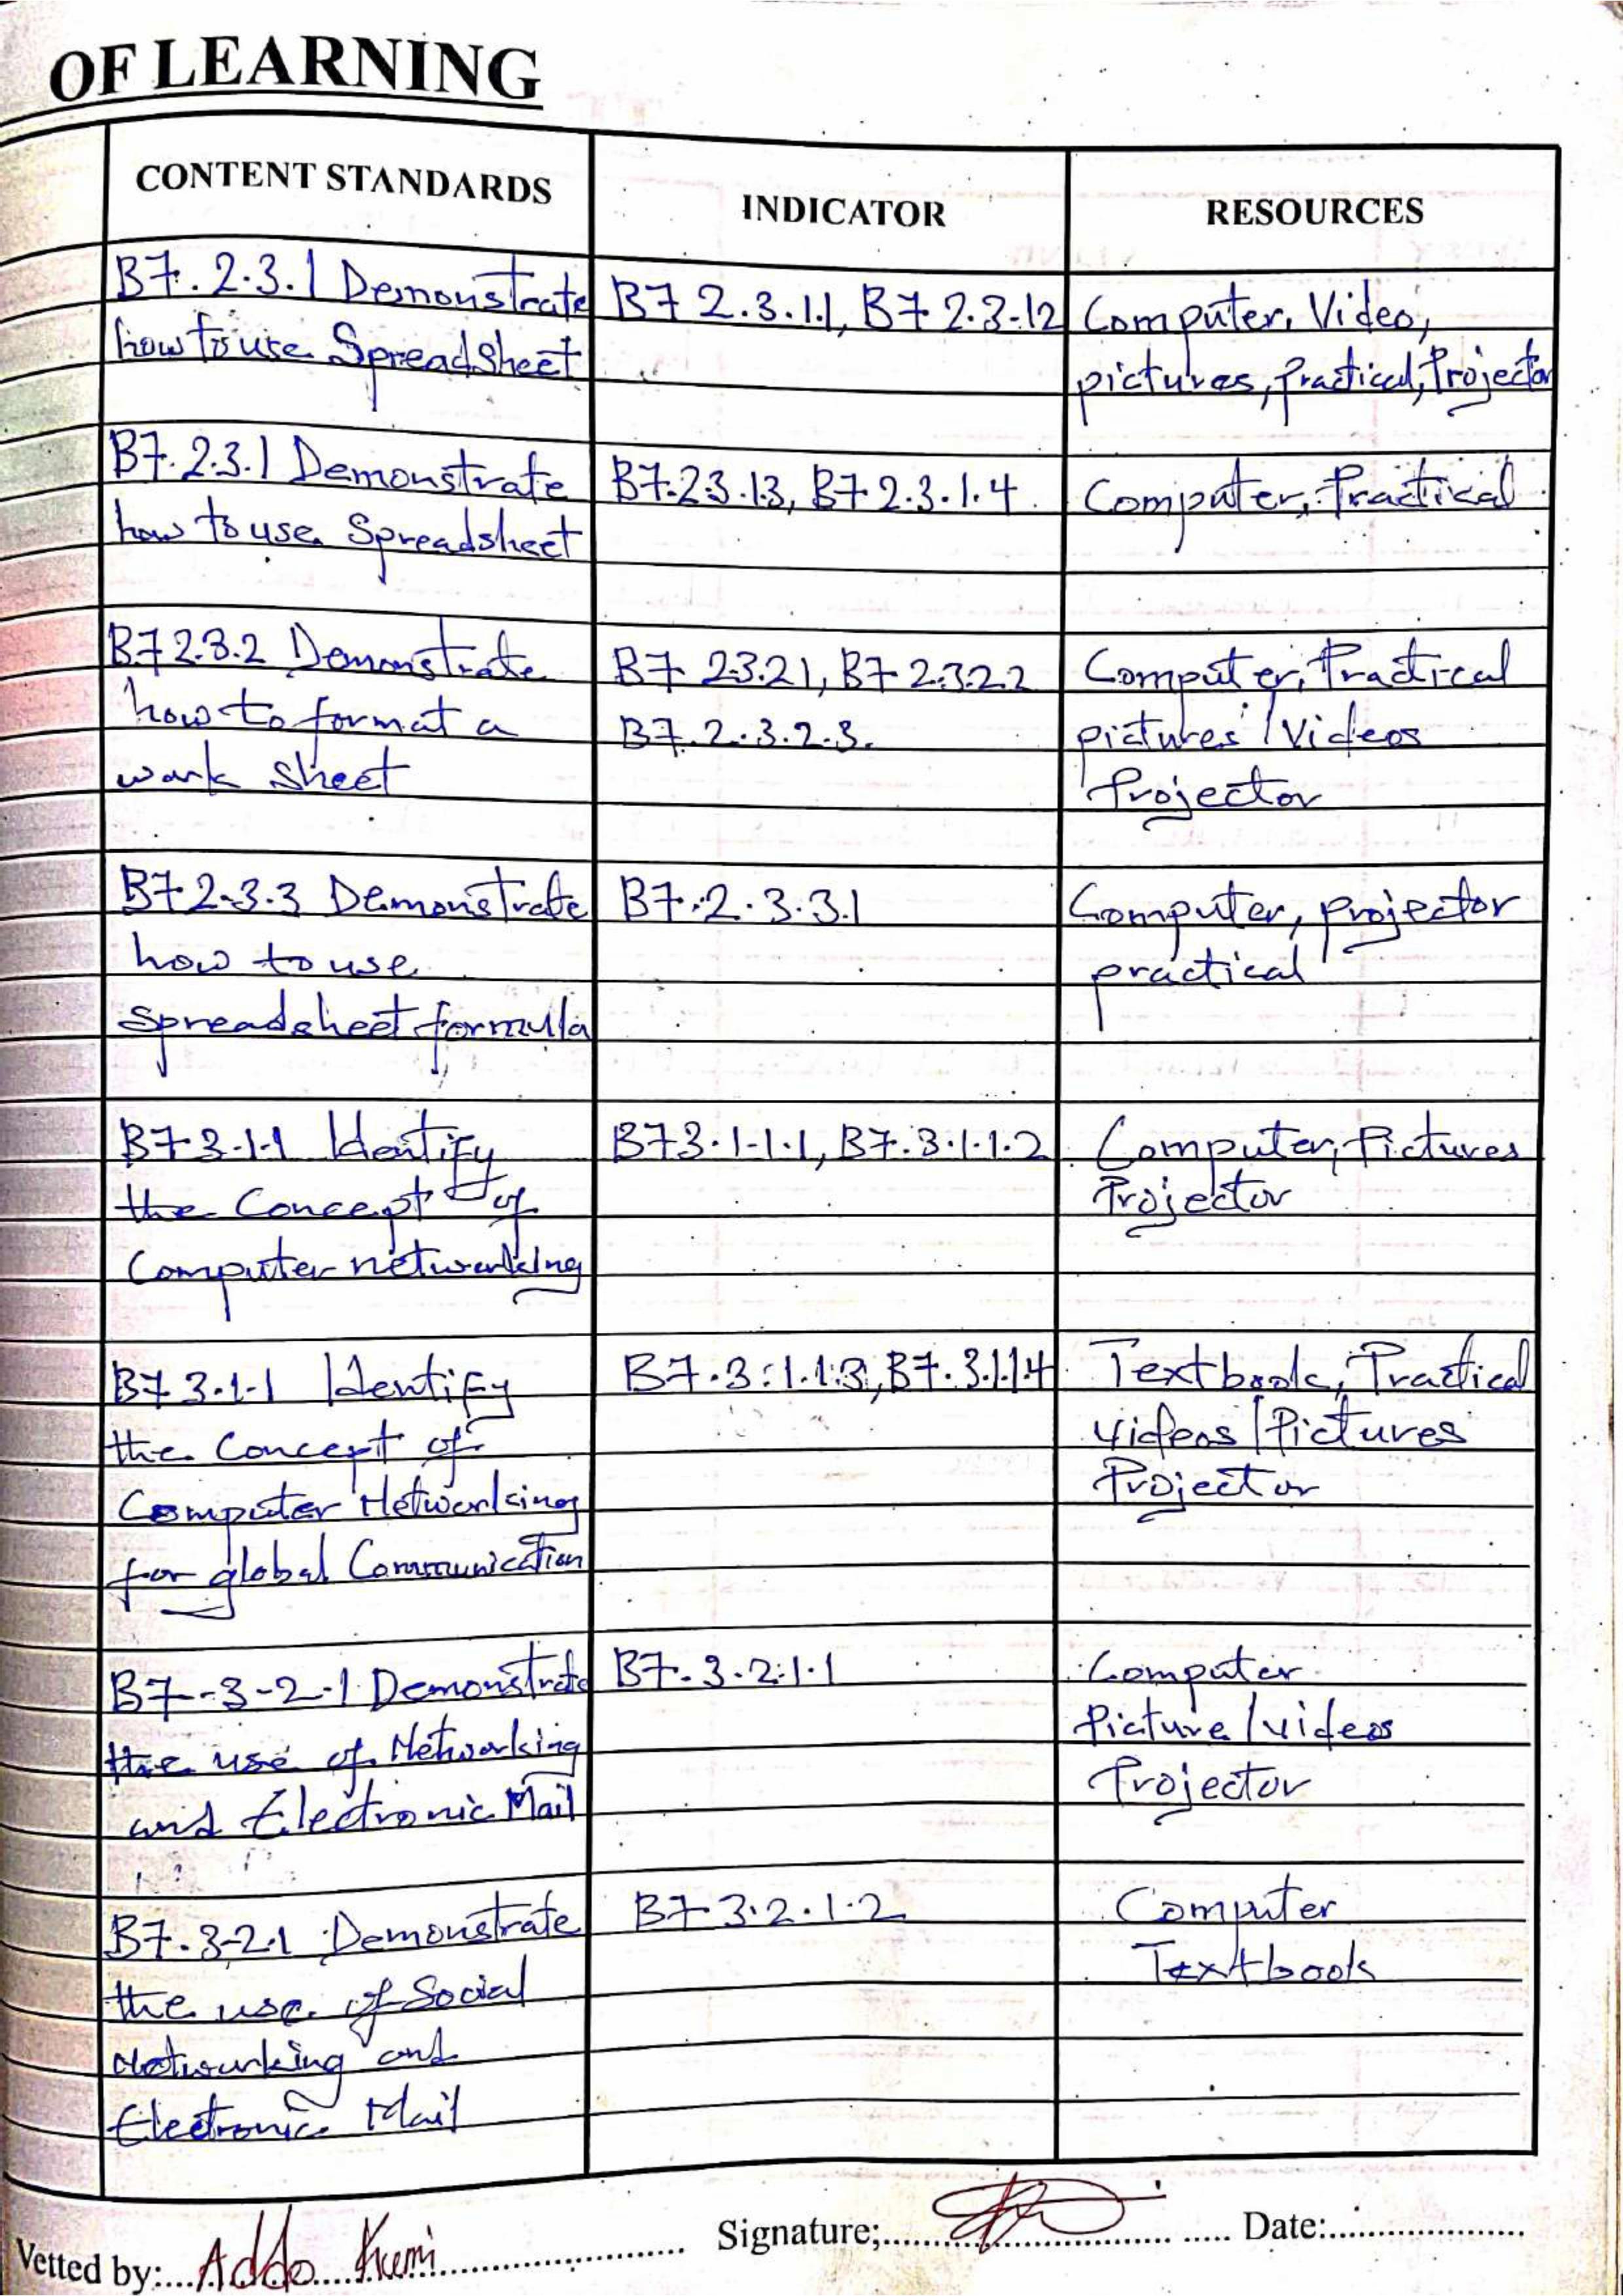 OF LEARNING
CONTENT STANDARDS
INDICATOR
RESOURCES
B7.2.3.1 Demonstrate
how to use Spreadsheet
B7 2.3.1.1, B7 2.3.12
Computer, Video,
pictures, practical, Projector
B7.2.3.1 Demonstrate
how to use Spreadsheet
B7.2.3.1.3, B7 2.3.1.4.
Computer, Practical
B7 2.3.2 Demonstrate
how to format a
work sheet
B7 2.3.2.1, B7 2.3.2.2
B7.2.3.2.3.
Computer, Practical
pictures / Videos
Projector
B7 2.3.3 Demonstrate
how to use
spreadsheet formula
B7.2.3.3.1
Computer, projector
practical
B7 3.1.1 Identify
the Concept of
Computer networking
B7 3.1.1.1, B7.3.1.1.2
Computer, Pictures
Projector
B7 3.1.1 Identify
the Concept of
Computer Networking
for global Communication
B7.3.1.1.3, B7.3.1.1.4
Textbook, Practical
Videos / Pictures
Projector
B7-3-2.1 Demonstrate
the use of Networking
and Electronic Mail
B7.3.2.1.1
Computer
Picture / videos
Projector
B7.3.2.1 Demonstrate
the use of Social
Networking and
Electronic Mail
B7 3.2.1.2
Computer
Textbook
Vetted by:... Addo Kumi ........ Signature;........ Date:........